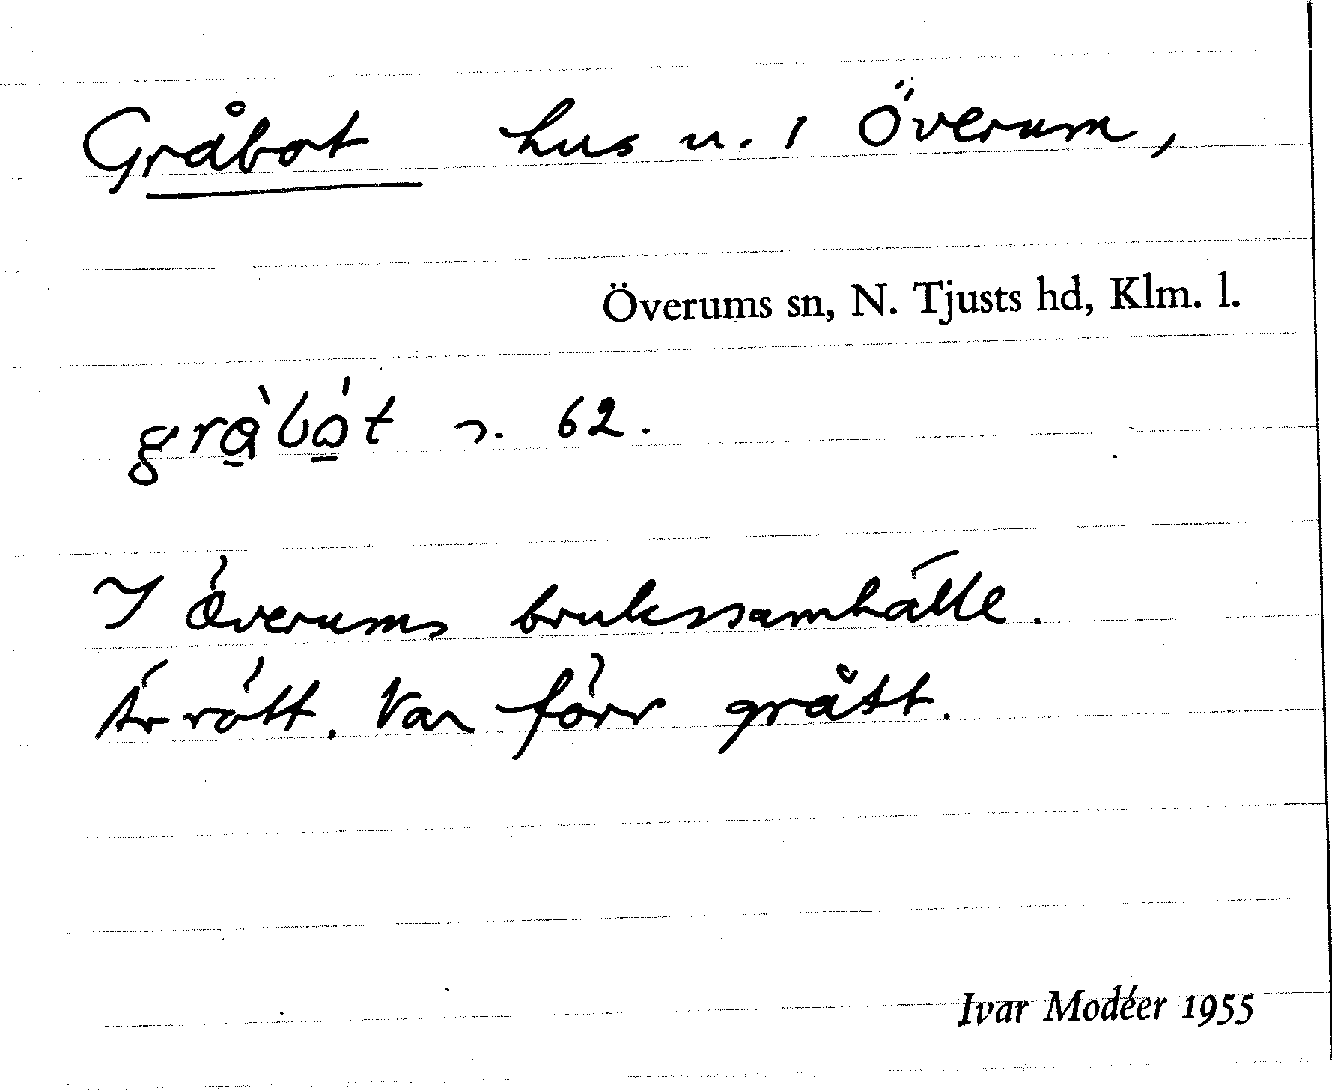 Gråbot hus u. 1 Överum,
Överums sn, N. Tjusts hd, Klm. l.
grå̀bó̠t n. 62.
I Överums brukssamhälle.
Är rött. Var förr grått.
Ivar Modéer 1955